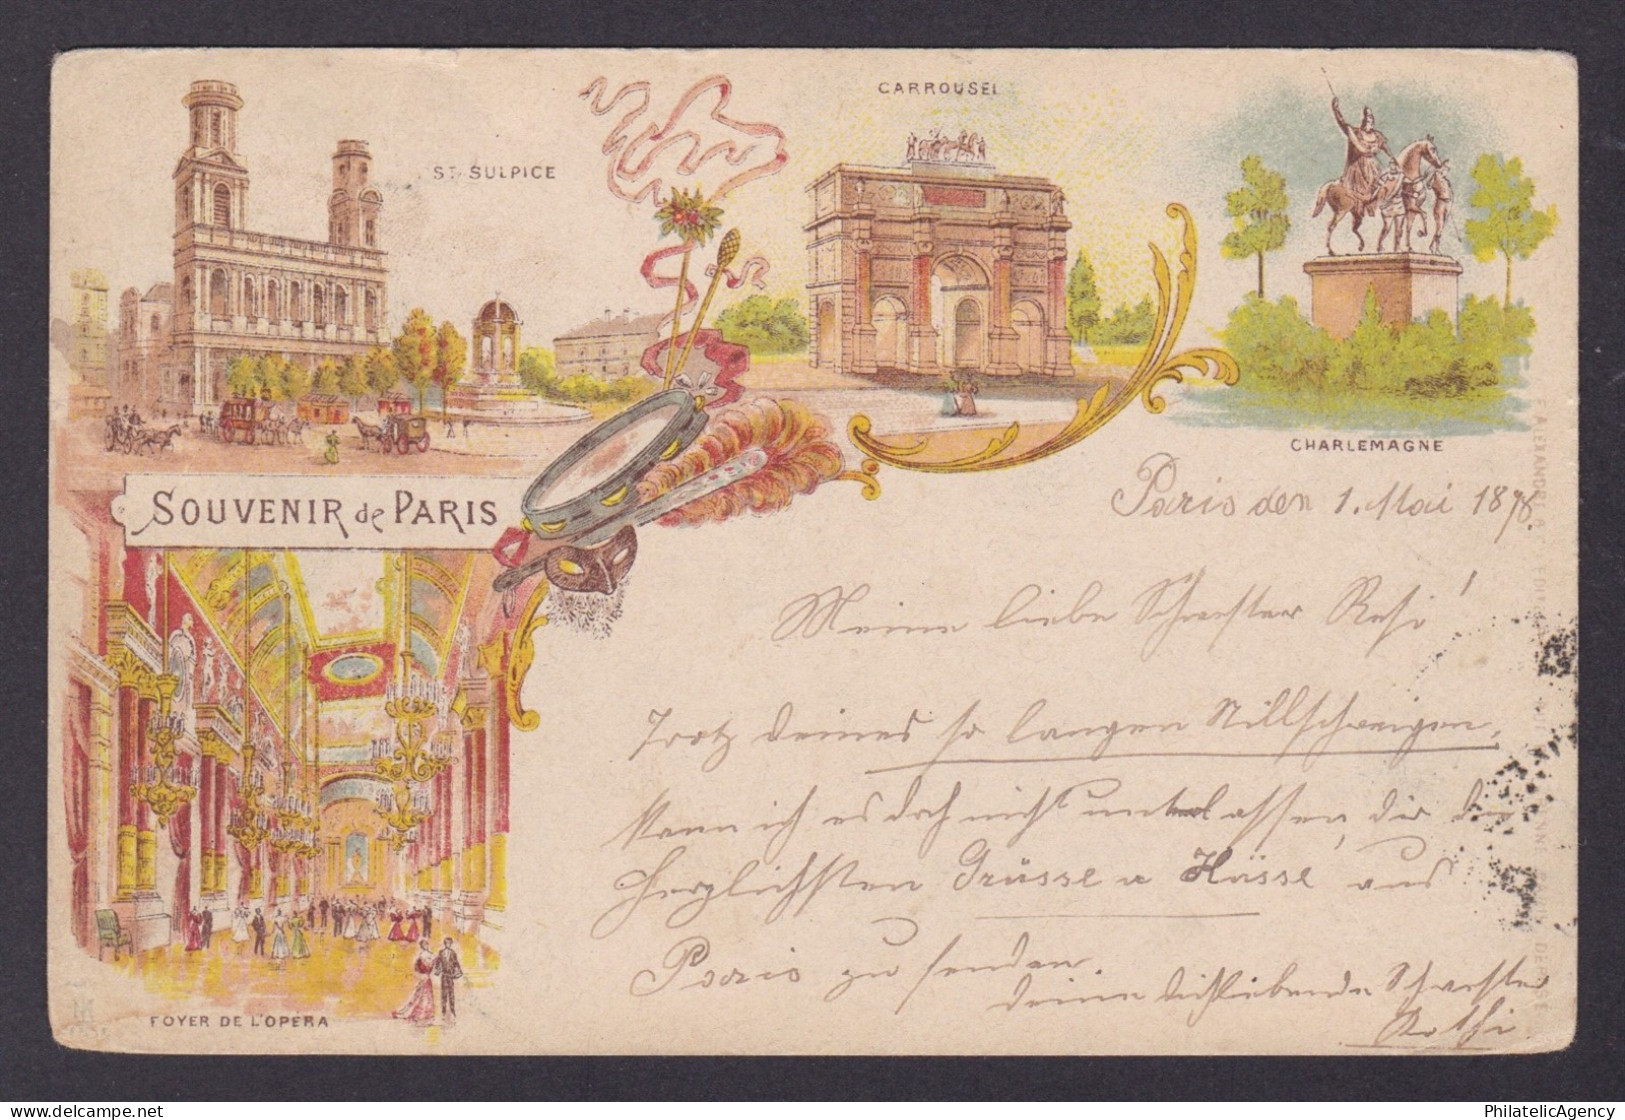 CARROUSEL
ST SULPICE
CHARLEMAGNE
SOUVENIR de PARIS
Paris den 1. Mai 1898.
Meine liebe Schwester Resi!
Trotz deines so langen Stillschweigen,
kann ich es doch nicht unterlassen, dir die
herzlichsten Grüsse u Küsse aus
Paris zu senden.
deine dichliebende Schwester
FOYER DE L'OPERA
PhilatelicAgency
delcampe.net